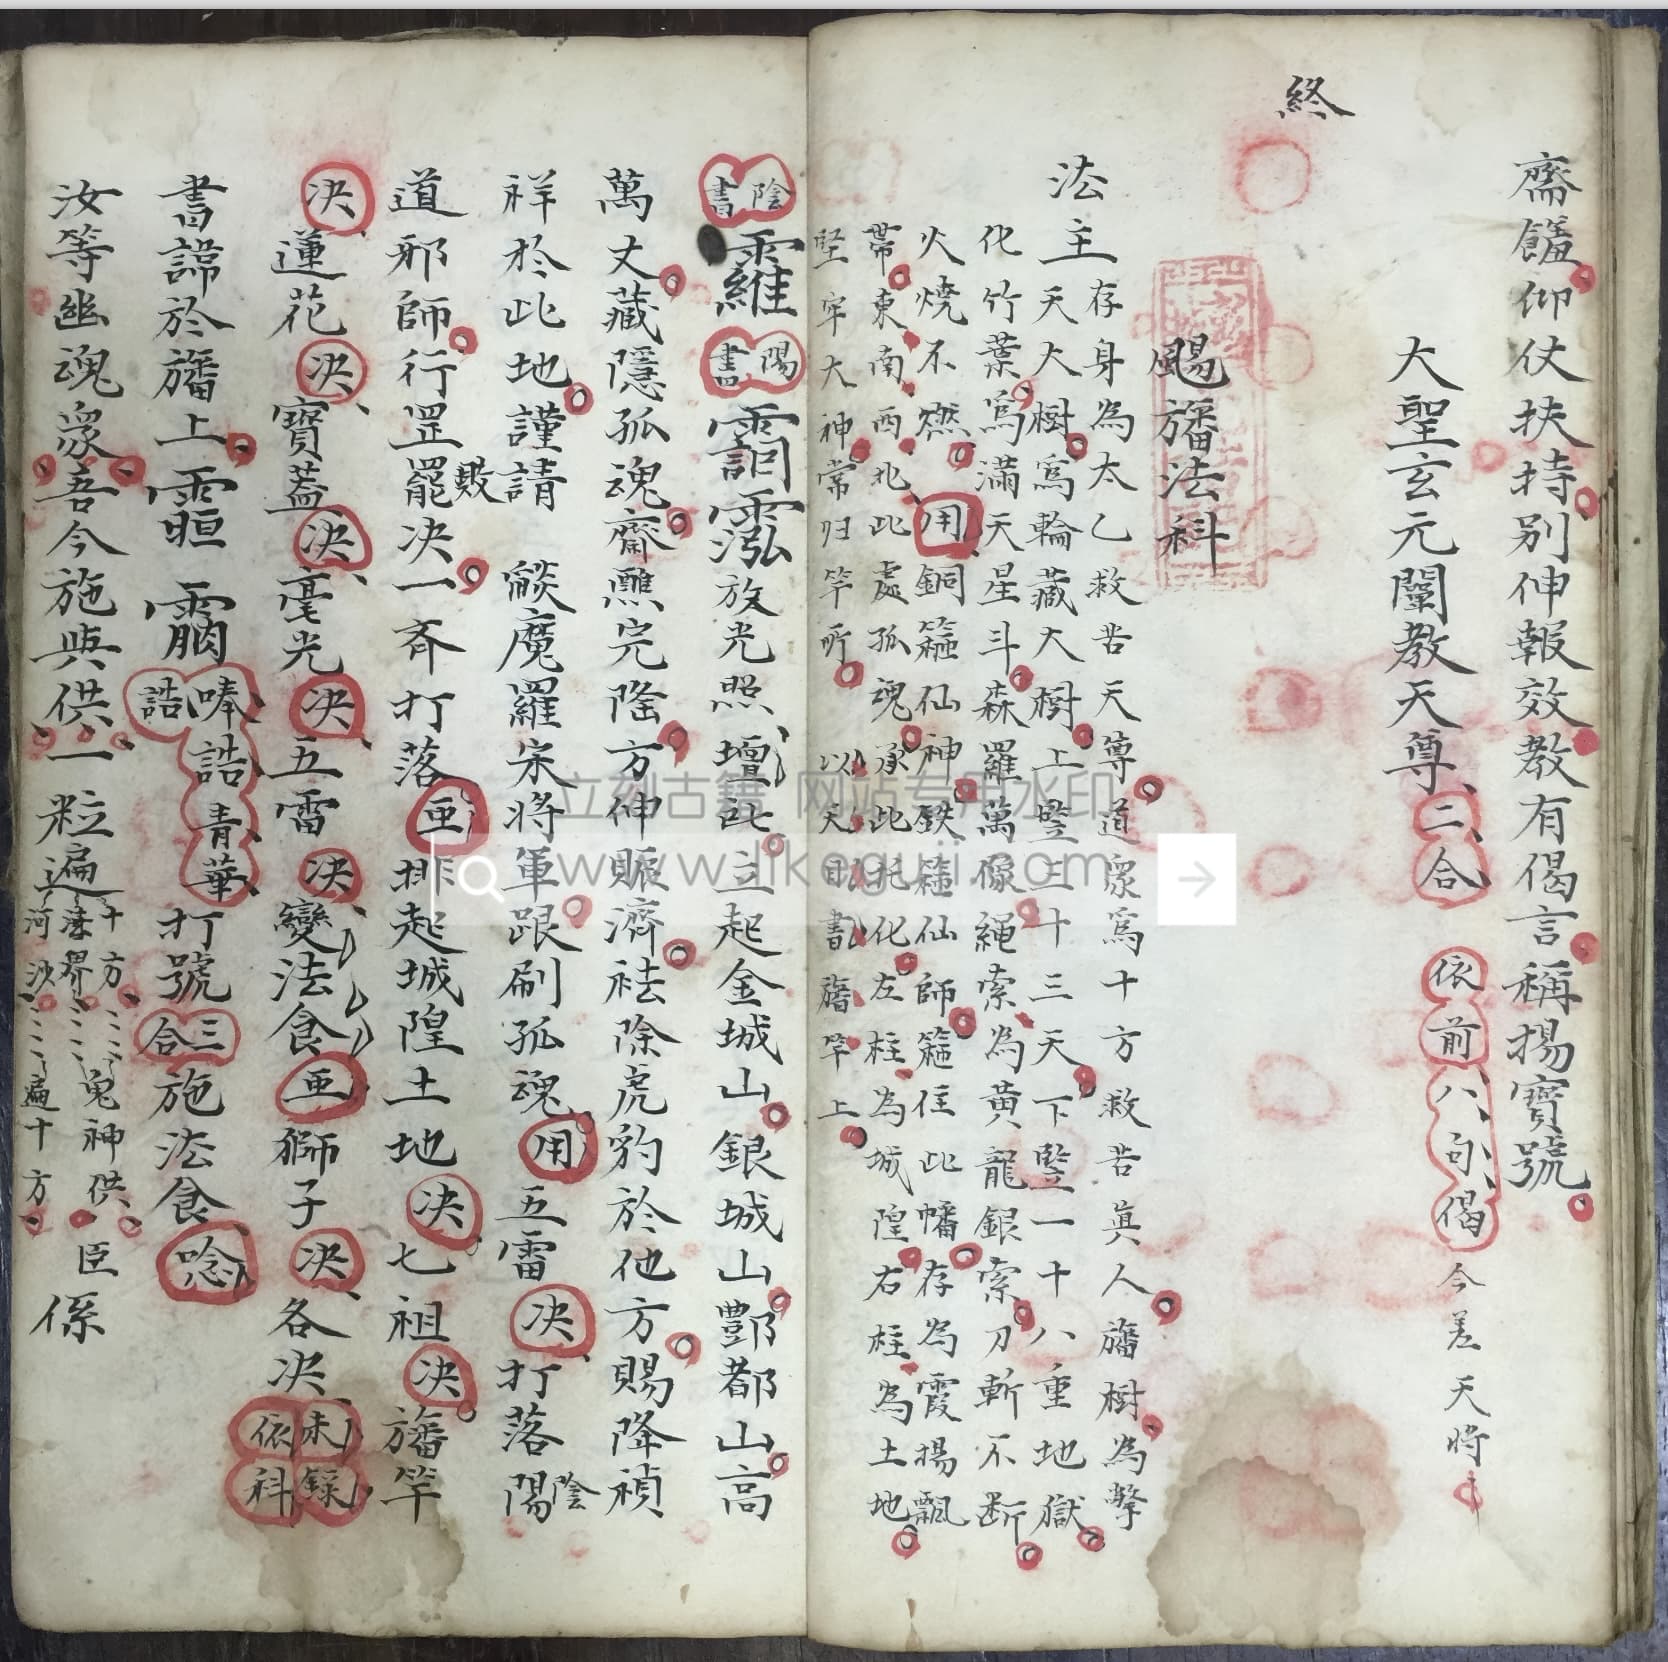 齋饈仰仗扶持别伸報效教有偈言稱揚寶號
大聖玄元闡教天尊二合 依前八句偈 今差天時
終
颺旛法科
法主
存身為太乙救苦天尊道眾爲十方救苦眞人旛樹為擎
天大樹爲輪藏大樹上豎三十三天下豎一十八重地獄
化竹葉爲滿天星斗森羅萬像繩索為黃龍銀索刀斬不断
火燒不燃用銅籮仙神鉄籮仙師籮住此幡存為霞揚飄
帶東南西北此處孤魂承此托化左柱為城隍右柱為土地
堅牢大神常归竿所 以天目書旛竿上
陰書 陽書 放光照壇此立起金城山銀城山酆都山高
萬丈藏隱孤魂齋醮完隆方伸賑濟袪除虎豹於他方賜降禎
祥於此地謹請 燄魔羅宋將軍跟刷孤魂用五雷决打落陽陰
道邪師行罡罷毀决一齐打落亜排起城隍土地决七祖决旛竿
决蓮花决寶蓋决毫光决五雷决變法食亜獅子决各决未録依科
書諱於旛上 唪誥誥青華打號三合施法食唸
汝等幽魂眾吾今施與供一粒遍十方
法界
河沙 鬼神供 臣係
遍十方
立刻古籍 网站专用水印
www.likeguji.com